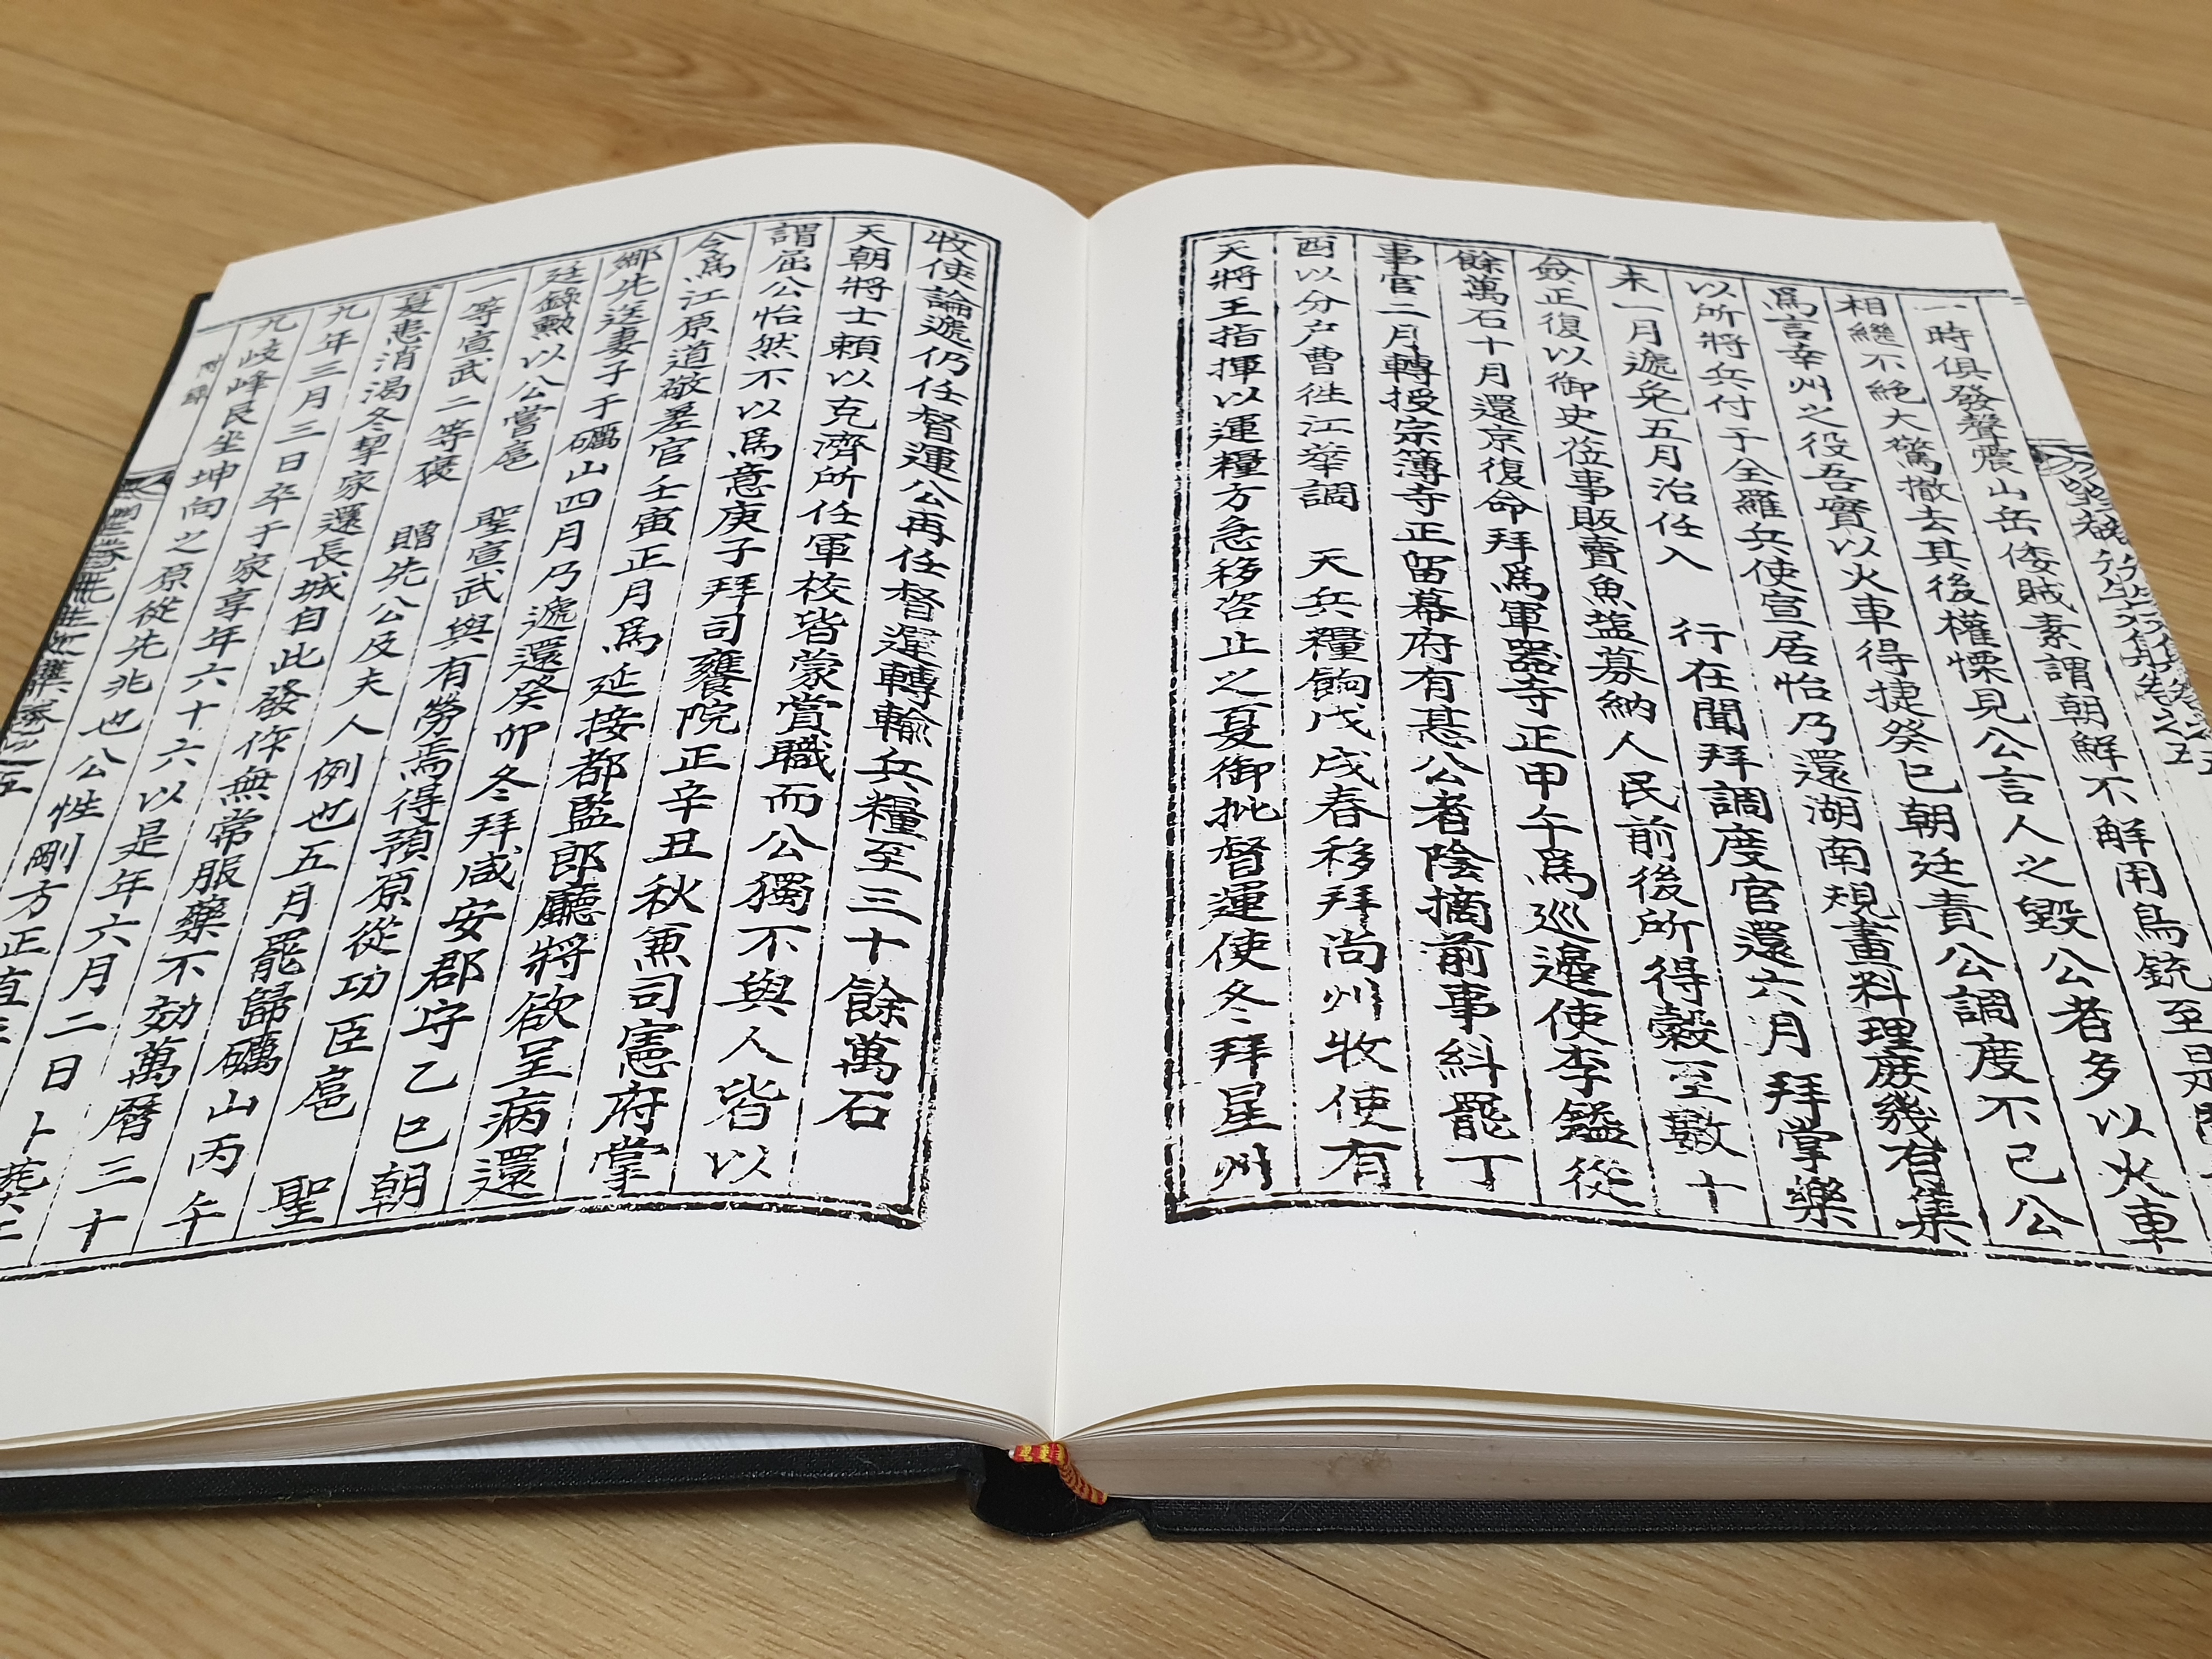 時俱發聲震山岳倭賊素謂朝鮮不解用鳥銃至是
相繼不絶大驚撤去其後權慄見公言人之毁公者多以火車
爲言幸州之役吾實以火車得捷癸巳朝廷責公調度不已公
以所將兵付于全羅兵使宣居怡乃還湖南規畫料理庶幾有集
未一月遞免五月治任入 行在聞拜調度官還六月拜掌樂
僉正復以御史莅事販賣魚鹽募納人民前後所得穀至數十
餘萬石十月還京復命拜爲軍器寺正甲午爲巡邊使李鎰從
事官二月轉授宗簿寺正留幕府有惎公者陰摘前事糾罷丁
酉以分戶曹徃江華調 天兵糧餉戊戌春移拜尚州牧使有
天將王指揮以運糧方急移咨止之夏御批督運使冬拜星州
牧使論遞仍任督運公再任督運轉輸兵糧至三十餘萬石
天朝將士賴以克濟所任軍校皆蒙賞職而公獨不與人皆以
謂屈公怡然不以爲意庚子拜司饔院正辛丑秋兼司憲府掌
令爲江原道敬差官壬寅正月爲延接都監郎廳將欲呈病還
鄉先送妻子于礪山四月乃遞還癸卯冬拜咸安郡守乙巳朝
廷錄勳以公嘗扈 聖宣武與有勞焉得預原從功臣扈 聖
一等宣武二等褒 贈先公及夫人例也五月罷歸礪山丙午
夏患消渴冬挈家還長城自此發作無常服藥不効萬曆三十
九年三月三日卒于家享年六十六以是年六月二日卜葬于
九岐峰艮坐坤向之原從先兆也公性剛方正直
附錄